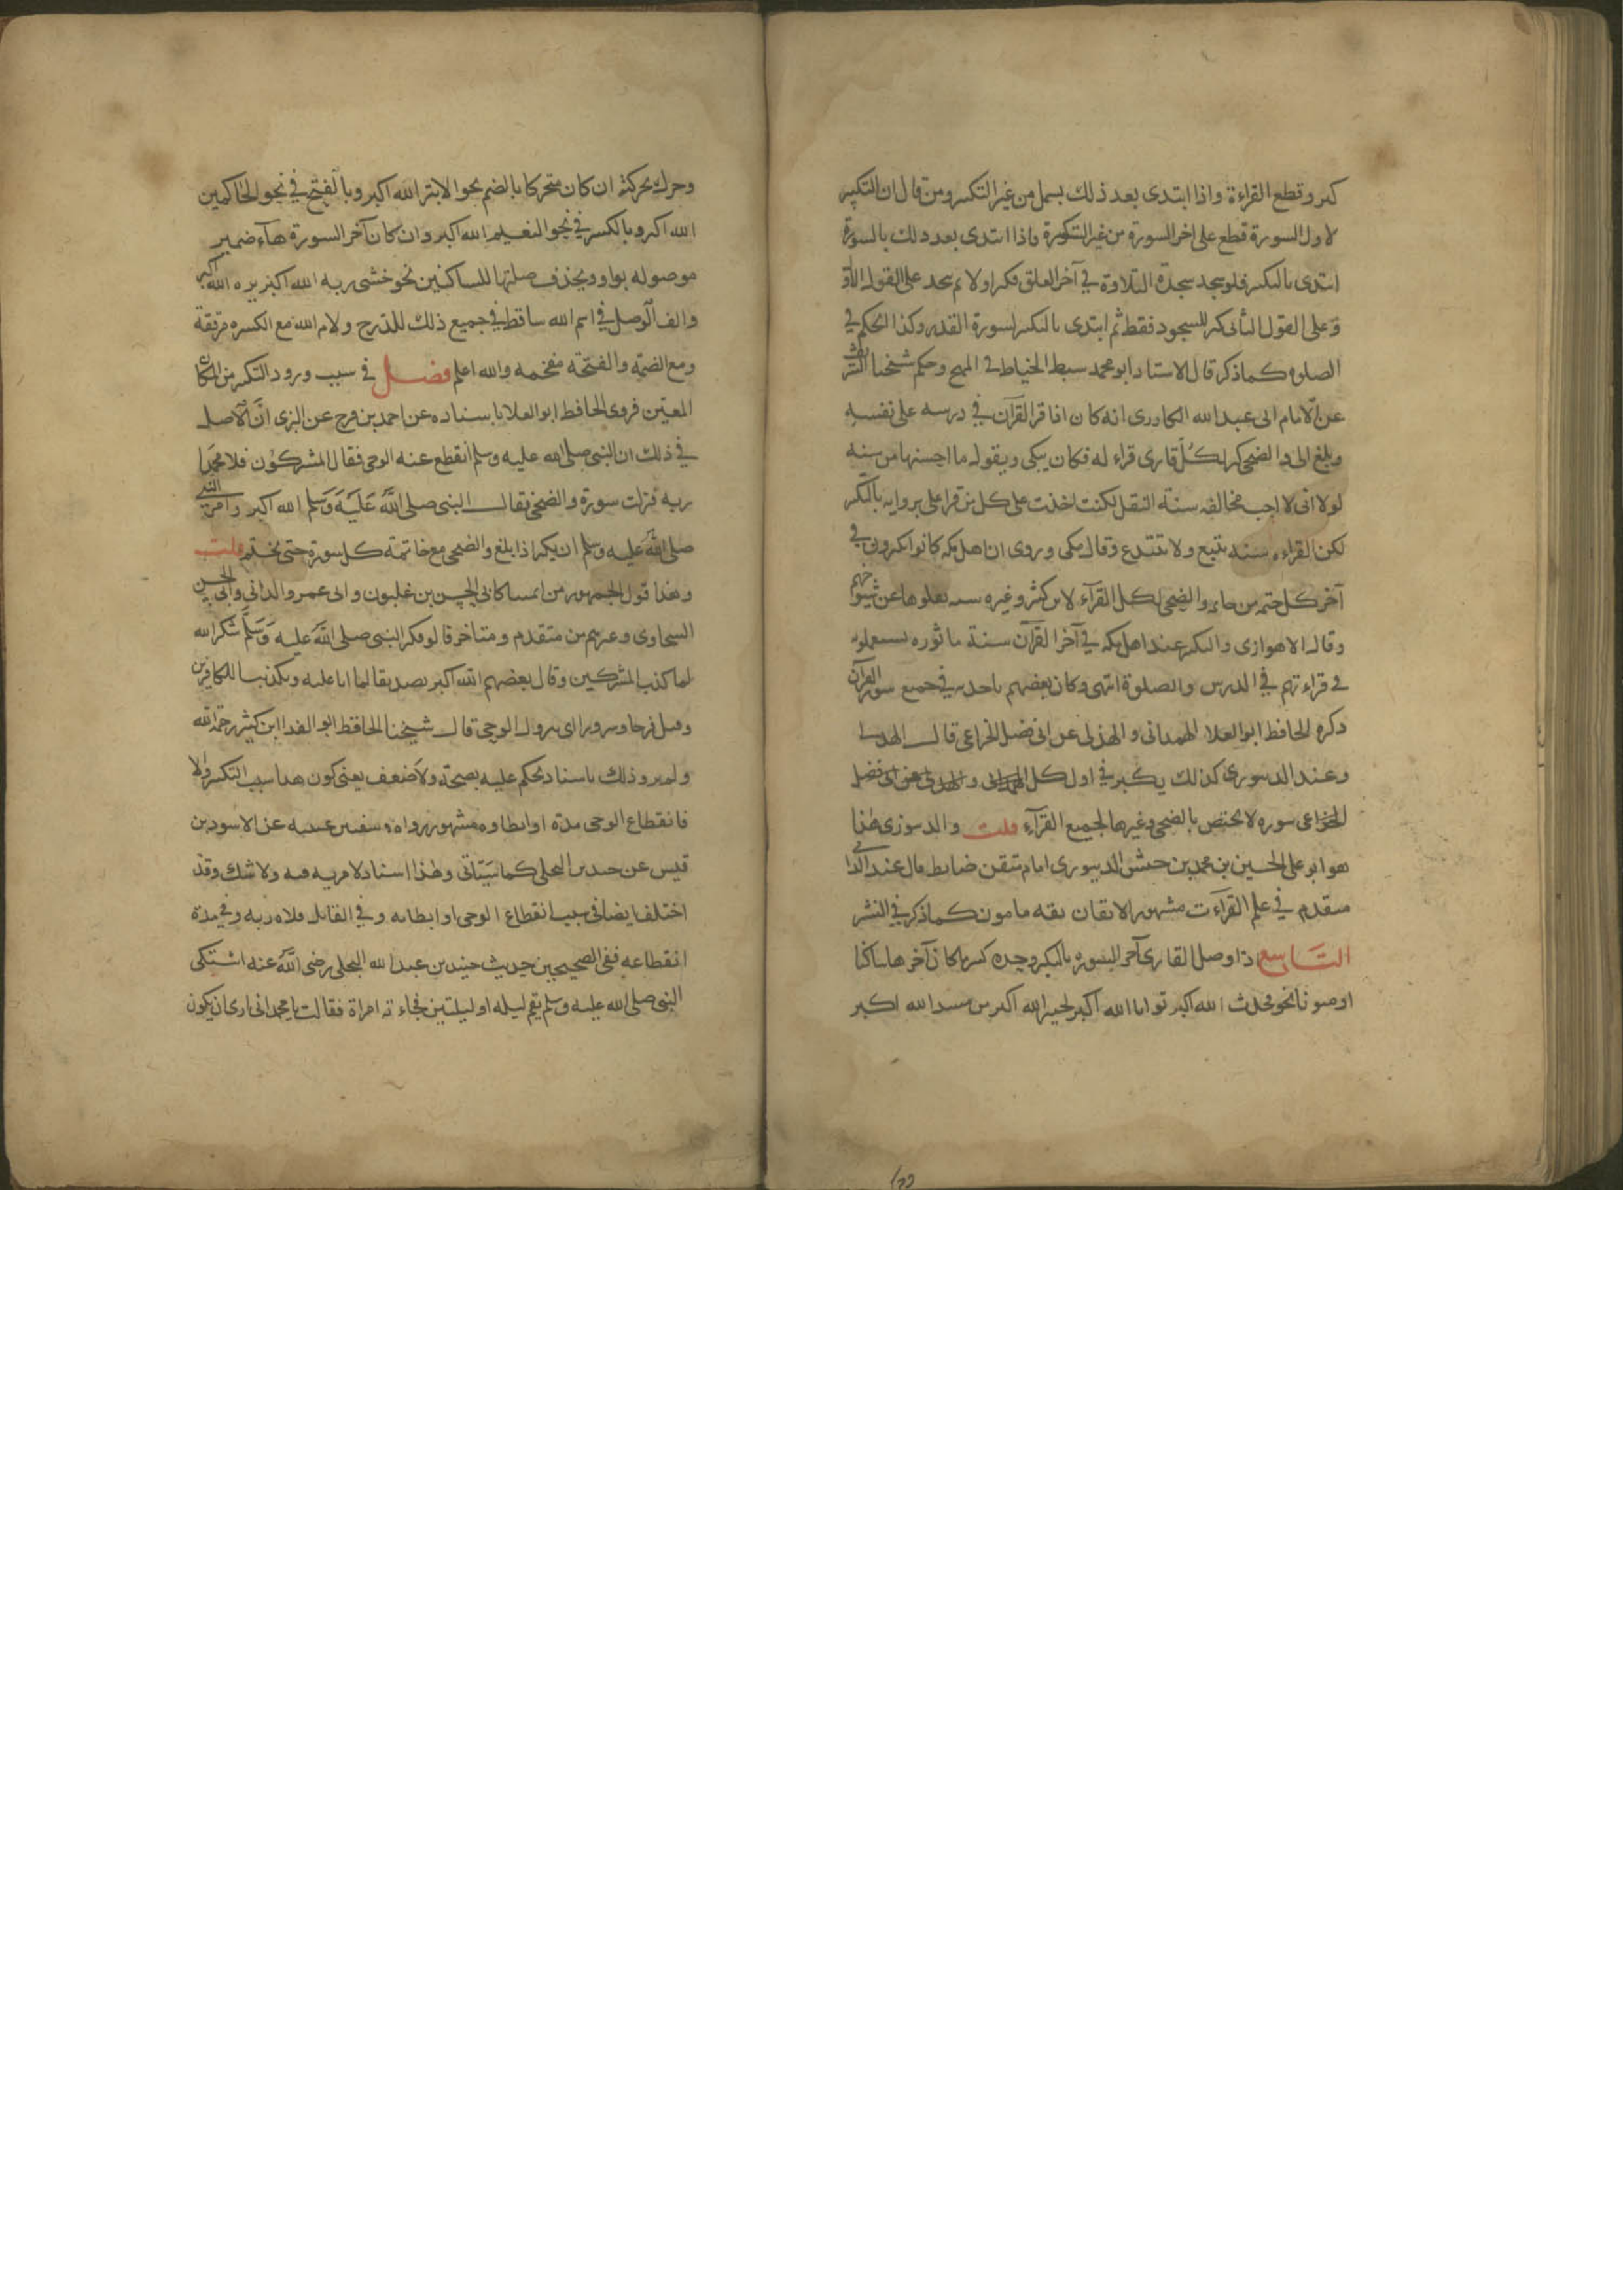 كبر وقطع القراءة واذا ابتدى بعد ذلك بسمل من غير التكبير ومن قال ان التكبير
لاول السورة قطع على اخر السورة من غير التكبيرة واذا ابتدى بعد ذلك بالسورة
ابتدى بالتكبير فلو سجد سجدة التلاوة في آخر العلق فكبر اولا ثم سجد على القول الاو
وعلى القول الثانى كبر للسجود فقط ثم ابتدى بالتكبير لسورة القدر وكذا الحكم في
الصلوه كما ذكر قال الاستاد ابو محمد سبط الخياط في المبهج وحكى شيخنا الشريف
عن الامام ابى عبد الله الكاوزى انه كان اذا قرا القرآن في درسه على نفسه
وبلغ الى والضحى كبر لكل قارى قراء له فكان يبكى ويقول ما احسنها من سنه
لولا انى لا احب مخالفه سنة النقل لكنت اخذت على كل من قرا على بروايه بالتكبير
لكن القراءه سنه تتبع ولا تبتدع وقال مكى وروى ان اهل مكه كانوا يكبرون في
آخر كل ختمه من خاتمه والضحى لكل القرآء لابن كثير وغيره سنه نقلوها عن شيوخهم
وقال الاهوازى والتكبير عند اهل مكه في آخر القرآن سنة ماثوره يستعملونه
في قراءتهم في الدرس والصلوة انتهى وكان بعضهم ياخذ به في جميع سور القرآن
ذكره الحافظ ابو العلا الهمدانى والهذلى عن ابى فضل الخزاعى قال الهذلى
وعند الدينورى كذلك يكبر في اول كل
الخزاعى سوره لا يختص بالضحى وغيرها لجميع القرآء قلت والدينورى هذا
هو ابو على الحسين بن محمد بن حبش الدينورى امام متقن ضابط قال عنه الدانى
متقدم في علم القراءت مشهور بالاتقان ثقه مامون كما ذكر في النشر
التاسع اذا وصل القارى آخر السوره بالتكبير وحده كسر ما كان آخرها ساكنا
او منونا نحو فحدث الله اكبر توابا الله اكبر لخبير الله اكبر من مسد الله اكبر
وحرك بحركته ان كان متحركا بالضم نحو الابتر الله اكبر وبالفتح في نحو الحاكمين
الله اكبر وبالكسر في نحو النعيم الله اكبر وان كان آخر السورة هآء ضمير
موصوله بواو ويحذف صلتها للساكنين نحو خشى ربه الله اكبر يره الله اكبر
والف الوصل في اسم الله ساقط في جميع ذلك للدرج ولام الله مع الكسره مرققة
ومع الضمة والفتحة مفخمه والله اعلم فصل في سبب ورود التكبير من المكان
المعين فروى الحافظ ابو العلا باسناده عن احمد بن فرح عن البزى ان الاصل
في ذلك ان النبى صلى الله عليه وسلم انقطع عنه الوحى فقال المشركون قلا محمدا
ربه فنزلت سورة والضحى فقال النبى صلى الله عليه وسلم الله اكبر وامر النبى
صلى الله عليه وسلم ان يكبر اذا بلغ والضحى مع خاتمة كل سورة حتى يختم قلت
وهذا قول الجمهور من ائمتنا كابى الحسن بن غلبون وابى عمرو الدانى وابى الحسن
السخاوى وغيرهم من متقدم ومتاخر قالو فكبر النبى صلى الله عليه وسلم شكرا لله
لما كذب المشركين وقال بعضهم الله اكبر تصديقا لما انا عليه وتكذيبا للكافرين
وقيل فرحا وسرورا اى بنزول الوحى قال شيخنا الحافظ ابو الفدا ابن كثير رحمه الله
ولم يرو ذلك باسناد يحكم عليه بصحة ولا ضعف يعنى كون هذا سبب التكبير والا
فانقطاع الوحى مدة او ابطاوه مشهور رواه سفين عن الاسود بن
قيس عن جندب البجلى كما سياتى وهذا اسناد لا مريه فيه ولا شك وقد
اختلف ايضا في سبب انقطاع الوحى او ابطائه وفي القائل قلاه ربه وفي مدة
انقطاعه ففى الصحيحين حديث جندب بن عبد الله البجلى رضى الله عنه اشتكى
النبى صلى الله عليه وسلم فلم يقم ليله او ليلتين فجاءته امراة فقالت يا محمد انى ارى ان يكون